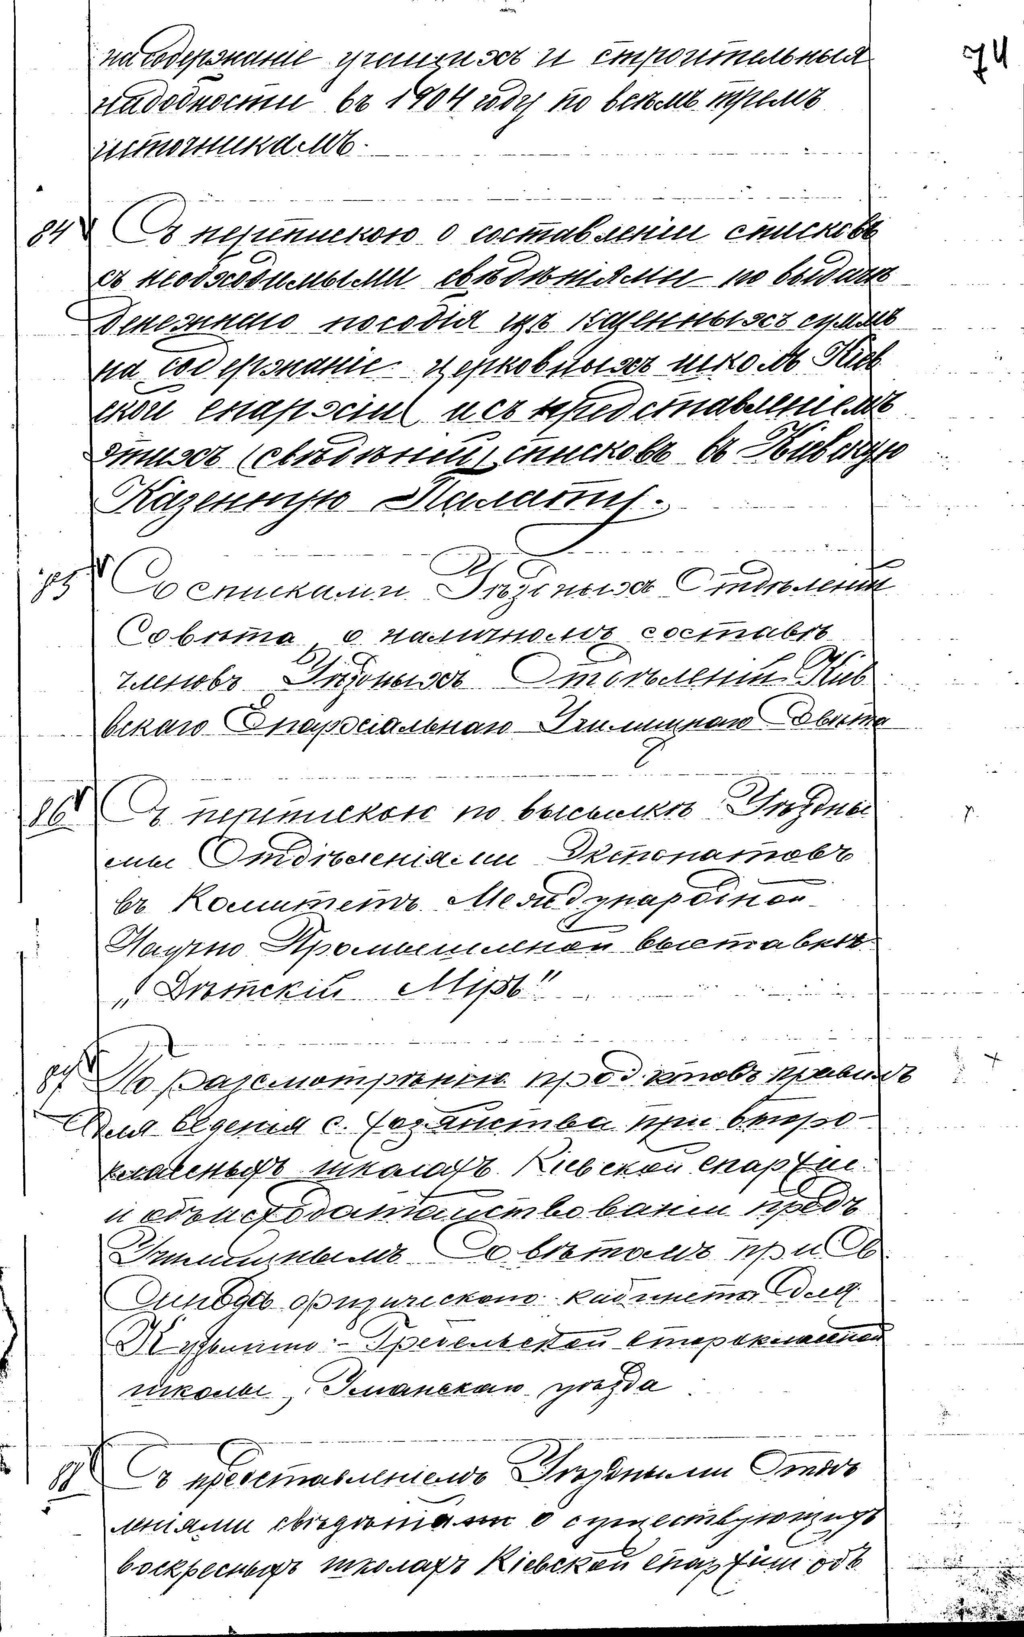 74
на содержаніе учащихъ и строительныя
надобности въ 1904 году по всѣмъ тремъ
источникамъ.
84 Съ перепискою о составленіи списковъ
съ необходимыми свѣдѣніями по выдачѣ
денежнаго пособія изъ казенныхъ суммъ
на содержаніе церковныхъ школъ Кіев
ской епархіи и съ представленіемъ
этихъ (свѣдѣній) списковъ въ Кіевскую
Казенную Палату.
85 Со списками Уѣздныхъ Отдѣленій
Совѣта о наличномъ составѣ
членовъ Уѣздныхъ Отдѣленій Кіев
вскаго Епархіальнаго Училищнаго Совѣта
86 Съ перепискою по высылкѣ Уѣздны
ми Отдѣленіями Экспонатовъ
въ Комитетъ Международной
Научно Промышленной выставкѣ
„Дѣтскій Міръ"
87 По разсмотрѣнію проэктовъ правилъ
для веденія с. хозяйства при второ-
классныхъ школахъ Кіевской епархіи
и объ исходатайствованіи предъ
Училищнымъ Совѣтомъ при Св.
Синодѣ физическаго кабинета для
Кузьмино-Гребельской второклассной
школы, Уманскаго уѣзда
88 Съ представленіемъ Уѣздными Отдѣ
леніями свѣдѣній о существующихъ
воскресныхъ школахъ Кіевской епархіи объ